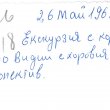 26 Май 196
18 Екскурзия с к
о Видин с хоровия
лектив.